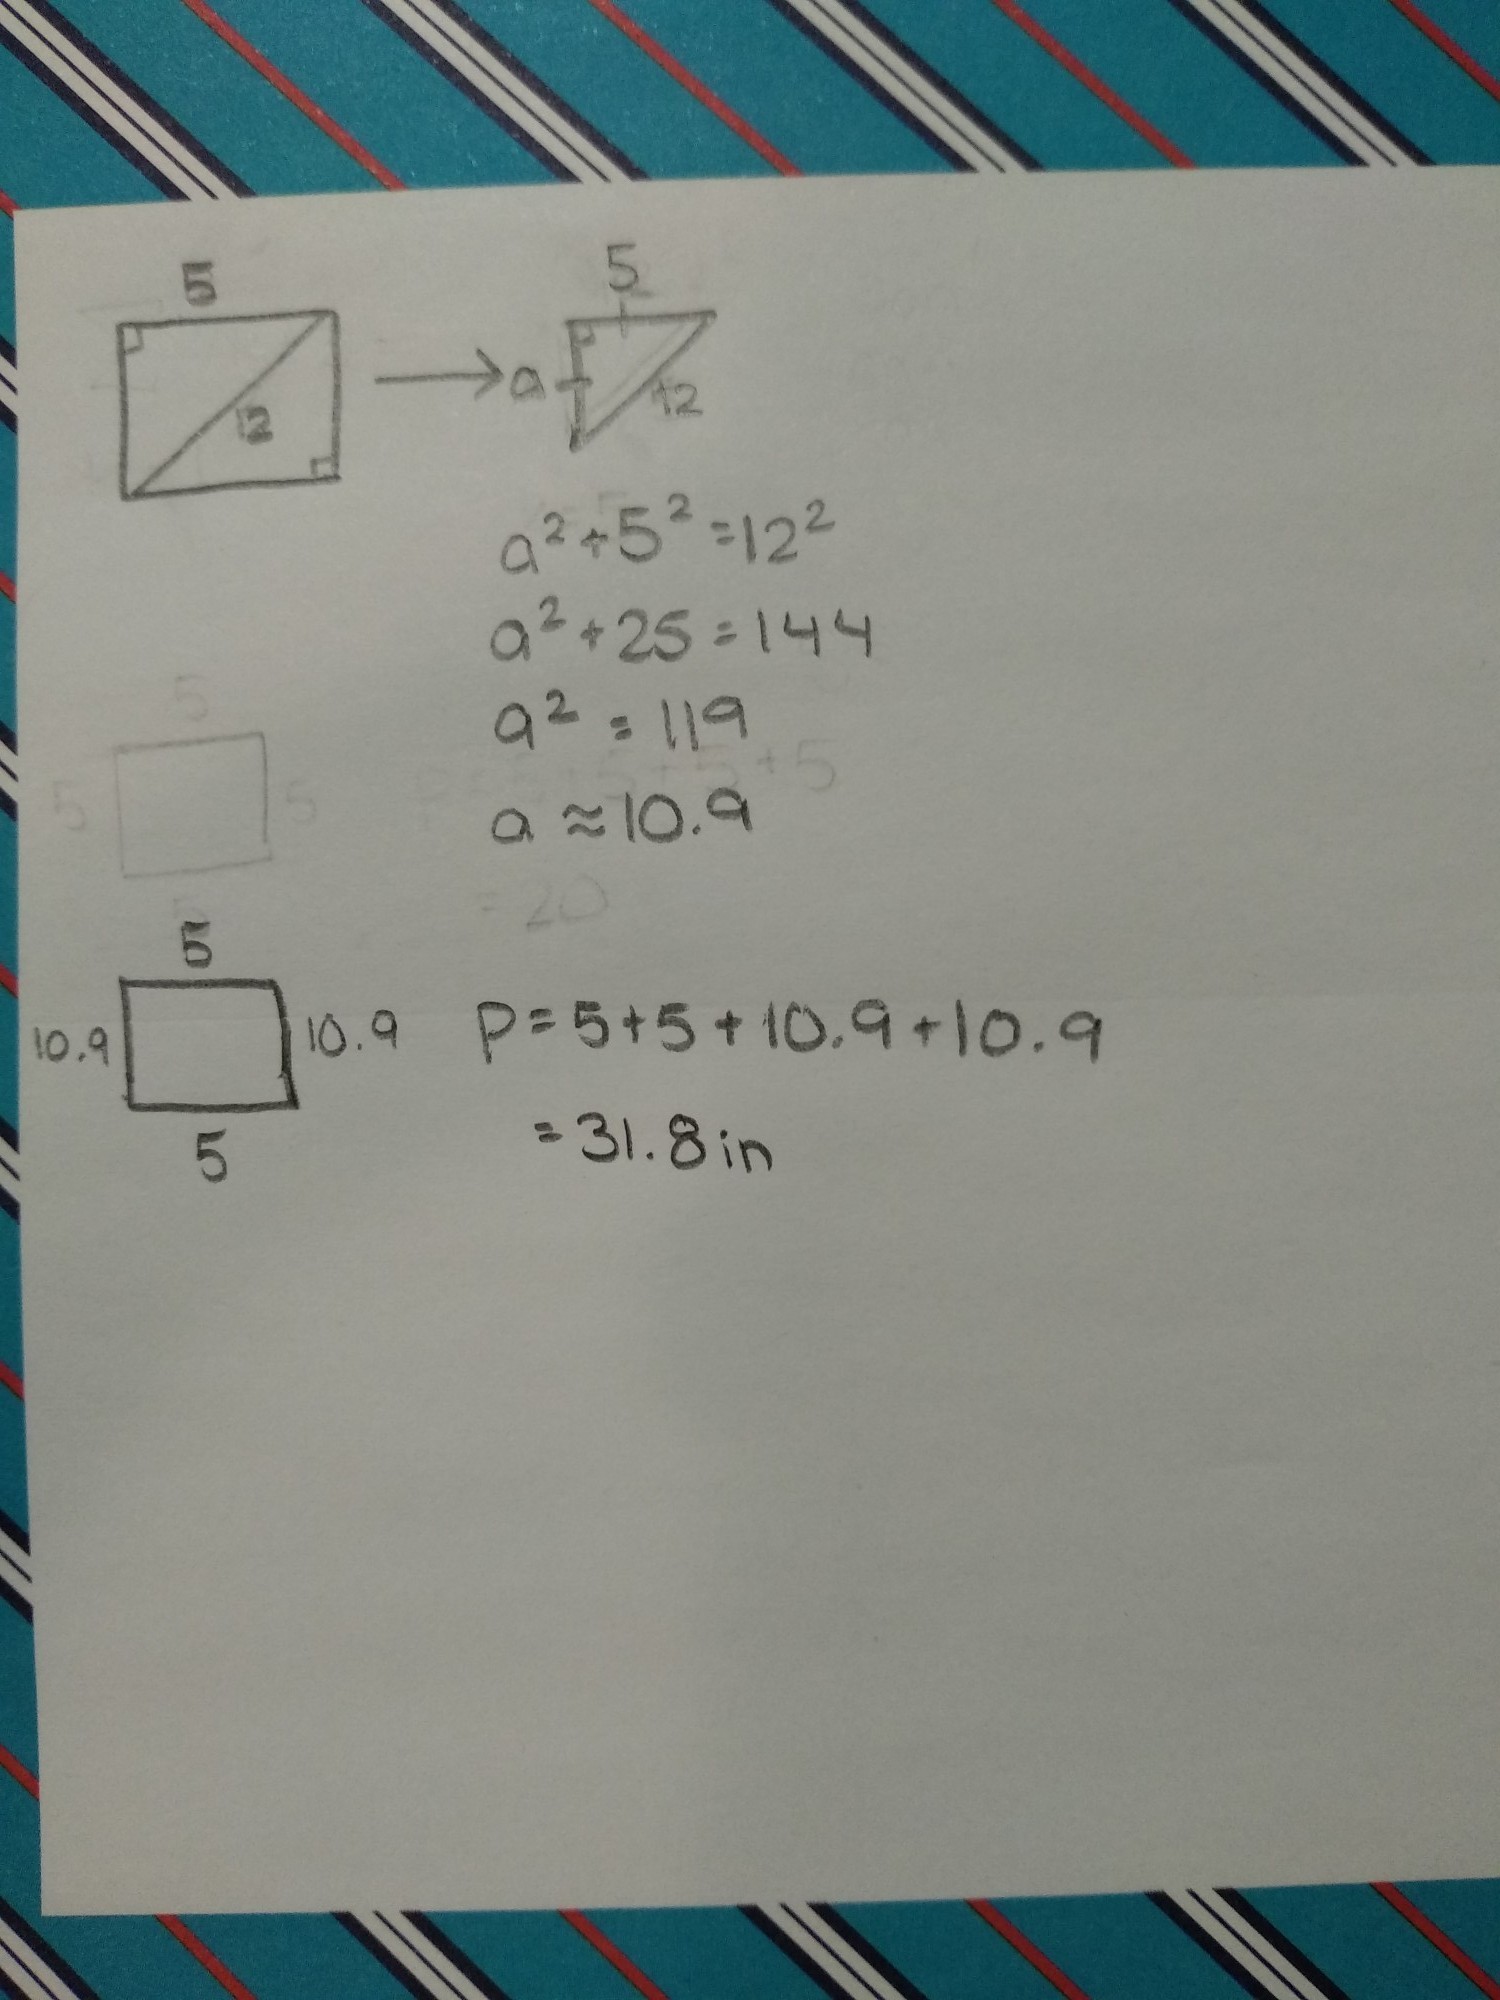 5
12
5
a
12
a² + 5² = 12²
a² + 25 = 144
a² = 119
5
5 5
+ 5 + 5
a ≈ 10.9
= 20
5
10.9 10.9 P = 5 + 5 + 10.9 + 10.9
5
= 31.8 in